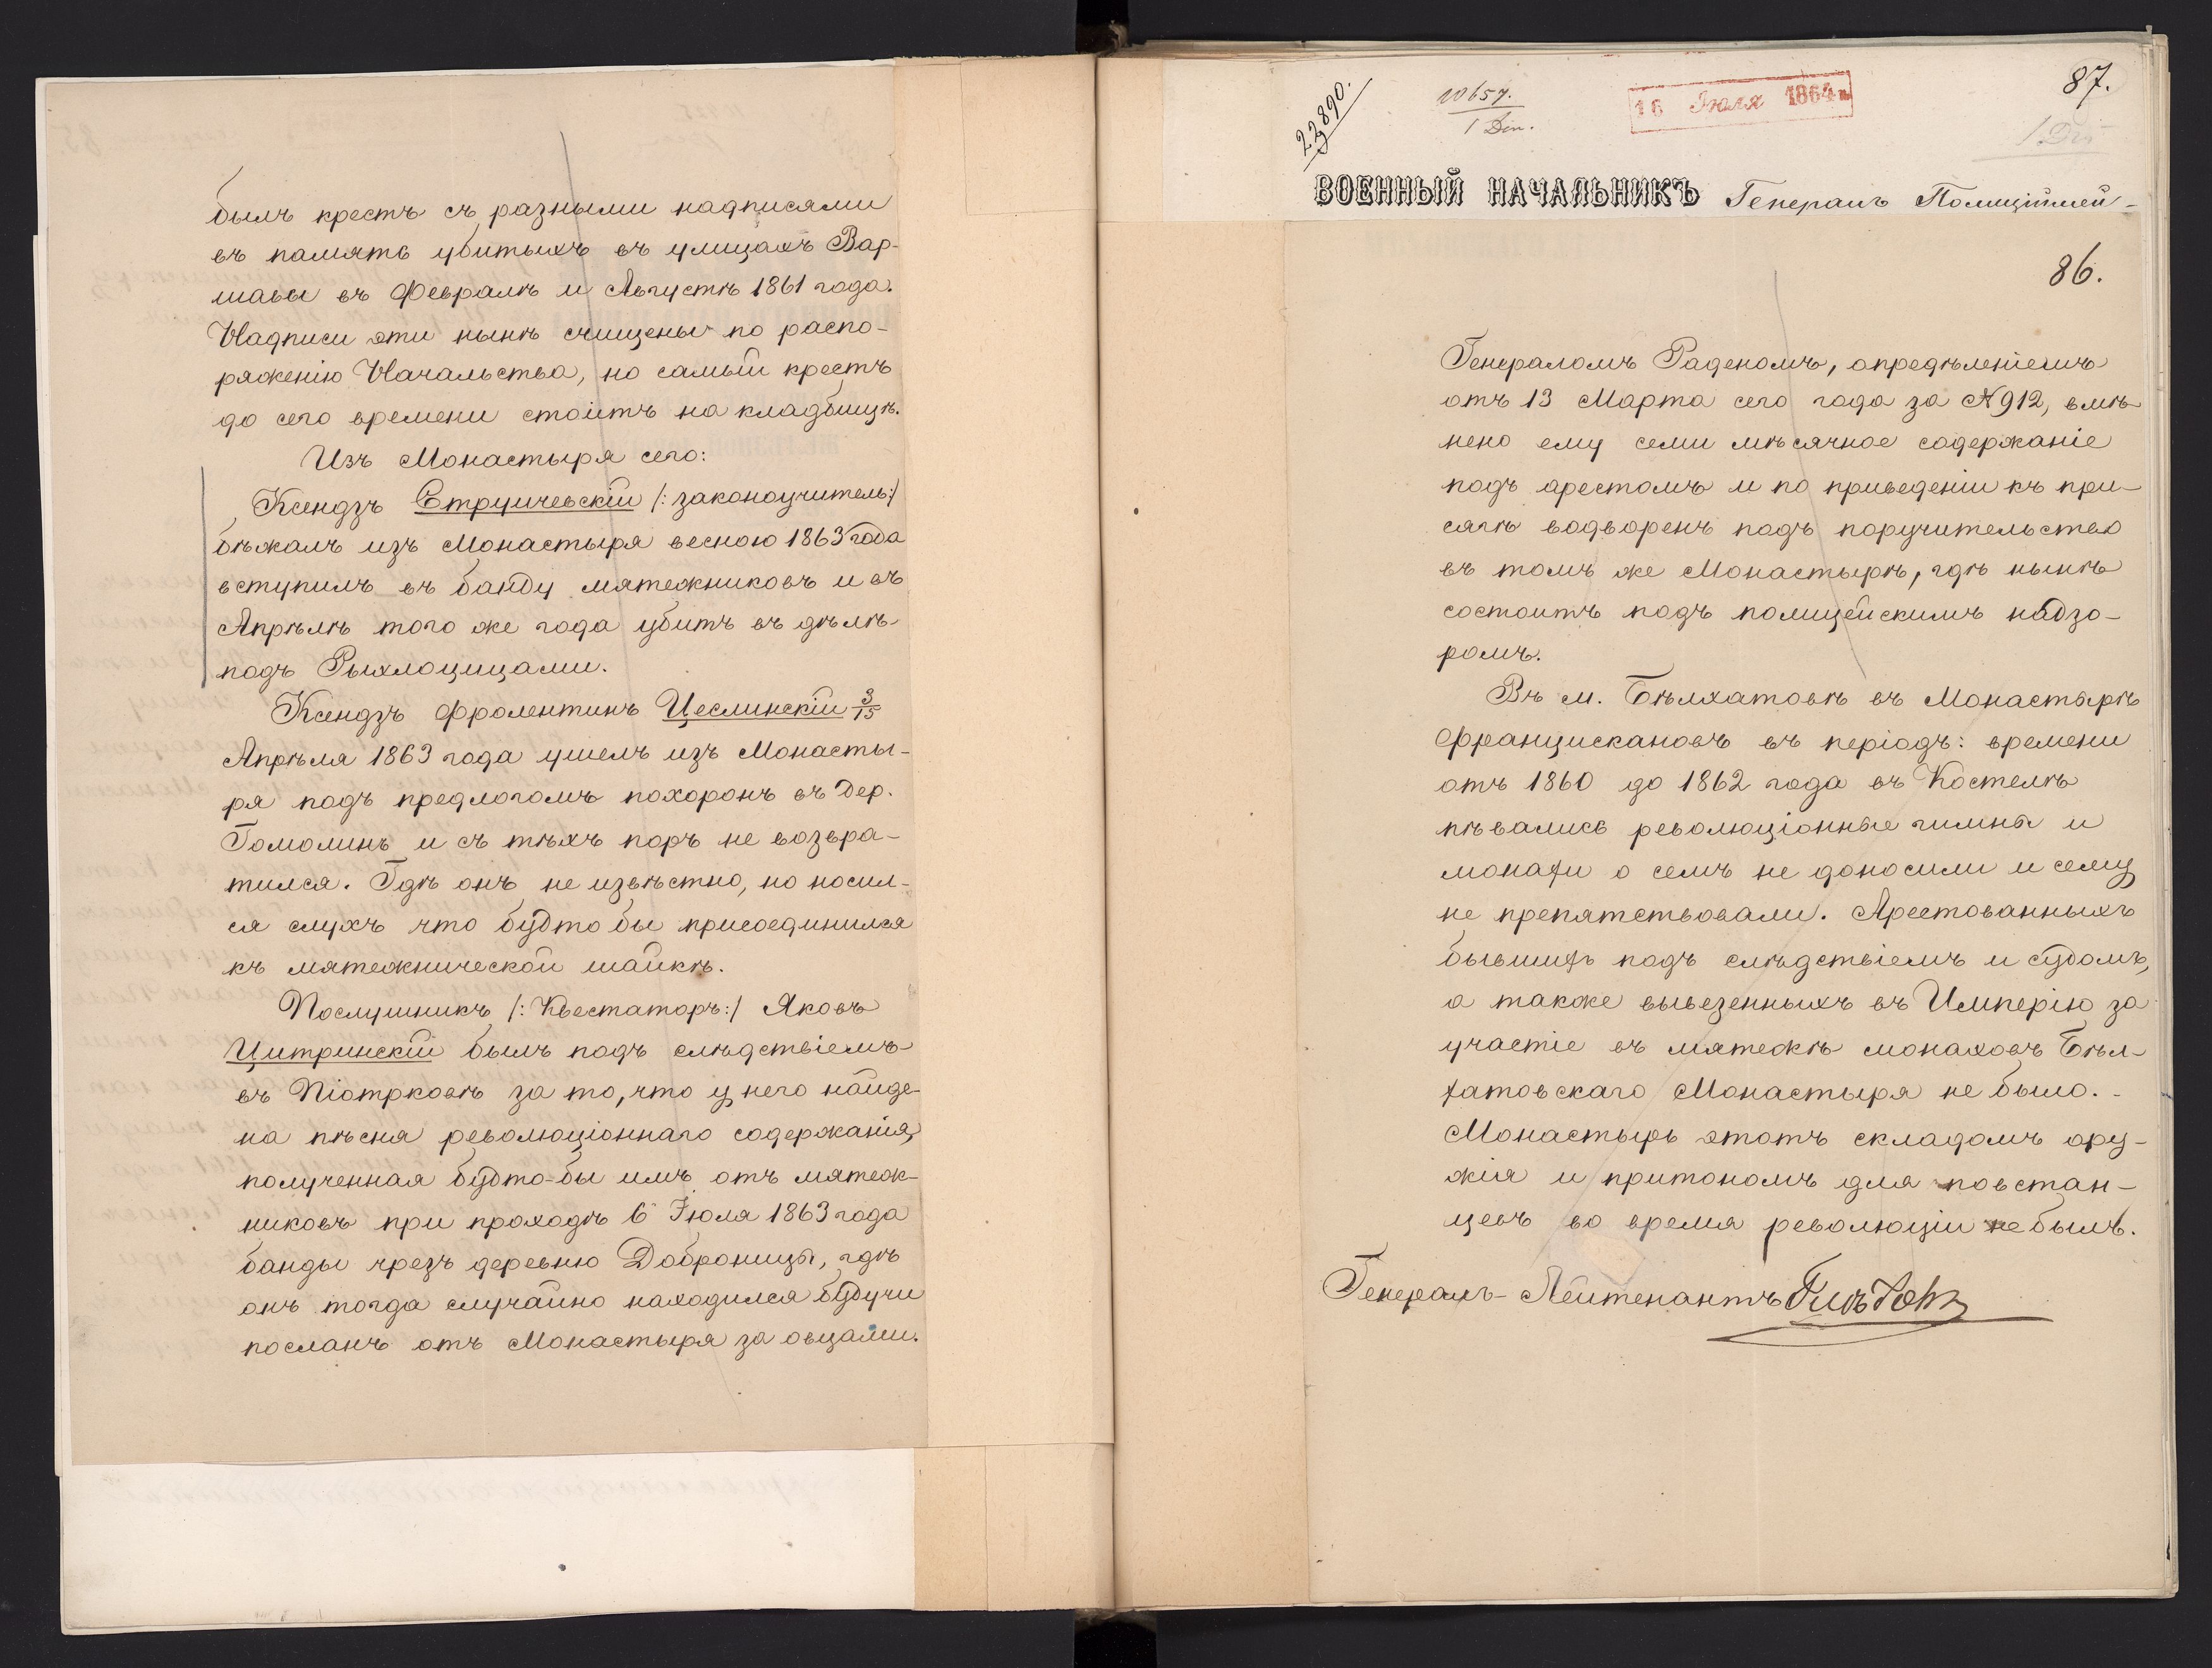 былъ крестъ съ разными надписями
въ память убитыхъ въ улицахъ Вар-
шавы въ Февралѣ и Августѣ 1861 года.
Надписи эти нынѣ счищены по распо-
ряженію Начальства, но самый крестъ
до сего времени стоитъ на кладбищѣ.
Изъ Монастыря сего:
Ксендзъ /: законоучитель:/
бѣжалъ изъ Монастыря весною 1863 года
вступилъ въ банду мятежниковъ и въ
Апрѣлѣ того же года убитъ въ дѣлѣ
подъ Рыхлоцицами.
Ксендзъ Фролентинъ Цеслинскій 3/15
Апрѣля 1863 года ушелъ изъ Монасты-
ря подъ предлогомъ похоронъ въ дер.
Гомолинъ и съ тѣхъ поръ не возвра-
тился. Гдѣ онъ не извѣстно, но носил-
ся слухъ что будто бы присоединился
къ мятежнической шайкѣ.
Послушникъ /: Квестаторъ:/ Яковъ
Цитринскій былъ подъ слѣдствіемъ
въ Піотрковѣ за то, что у него найде-
на пѣсня революціоннаго содержанія,
полученная будто-бы имъ отъ мятеж-
никовъ при проходѣ 6 Іюля 1863 года
банды чрезъ деревню Доброницы, гдѣ
онъ тогда случайно находился будучи
посланъ отъ Монастыря за овцами.
22890.
10657.
1 Dzn.
16 Іюля 1864 г.
87.
ВОЕННЫЙ НАЧАЛЬНИКЪ Генералъ Полиціймей-
86.
Генераломъ Раденомъ, опредѣленіемъ
отъ 13 Марта сего года за № 912, вмѣ-
нено ему семи мѣсячное содержаніе
подъ арестомъ и по приведеніи къ при-
сягѣ водворенъ подъ поручительство
въ томъ же Монастырѣ, гдѣ нынѣ
состоитъ подъ полицейскимъ надзо-
ромъ.
Въ м. Бѣлхатовѣ въ Монастырѣ
Францискановъ въ періодъ: времени
отъ 1860 до 1862 года въ Костелѣ
пѣвались революціонные гимны и
монахи о семъ не доносили и сему
не препятствовали. Арестованныхъ
бывшихъ подъ слѣдствіемъ и судомъ,
а также вывезенныхъ въ Имперію за
участіе въ мятежѣ монаховъ Бѣл-
хатовскаго Монастыря не было.
Монастырь этотъ складомъ ору-
жія и притономъ для повстан-
цевъ во время революціи не былъ.
Генералъ-Лейтенантъ